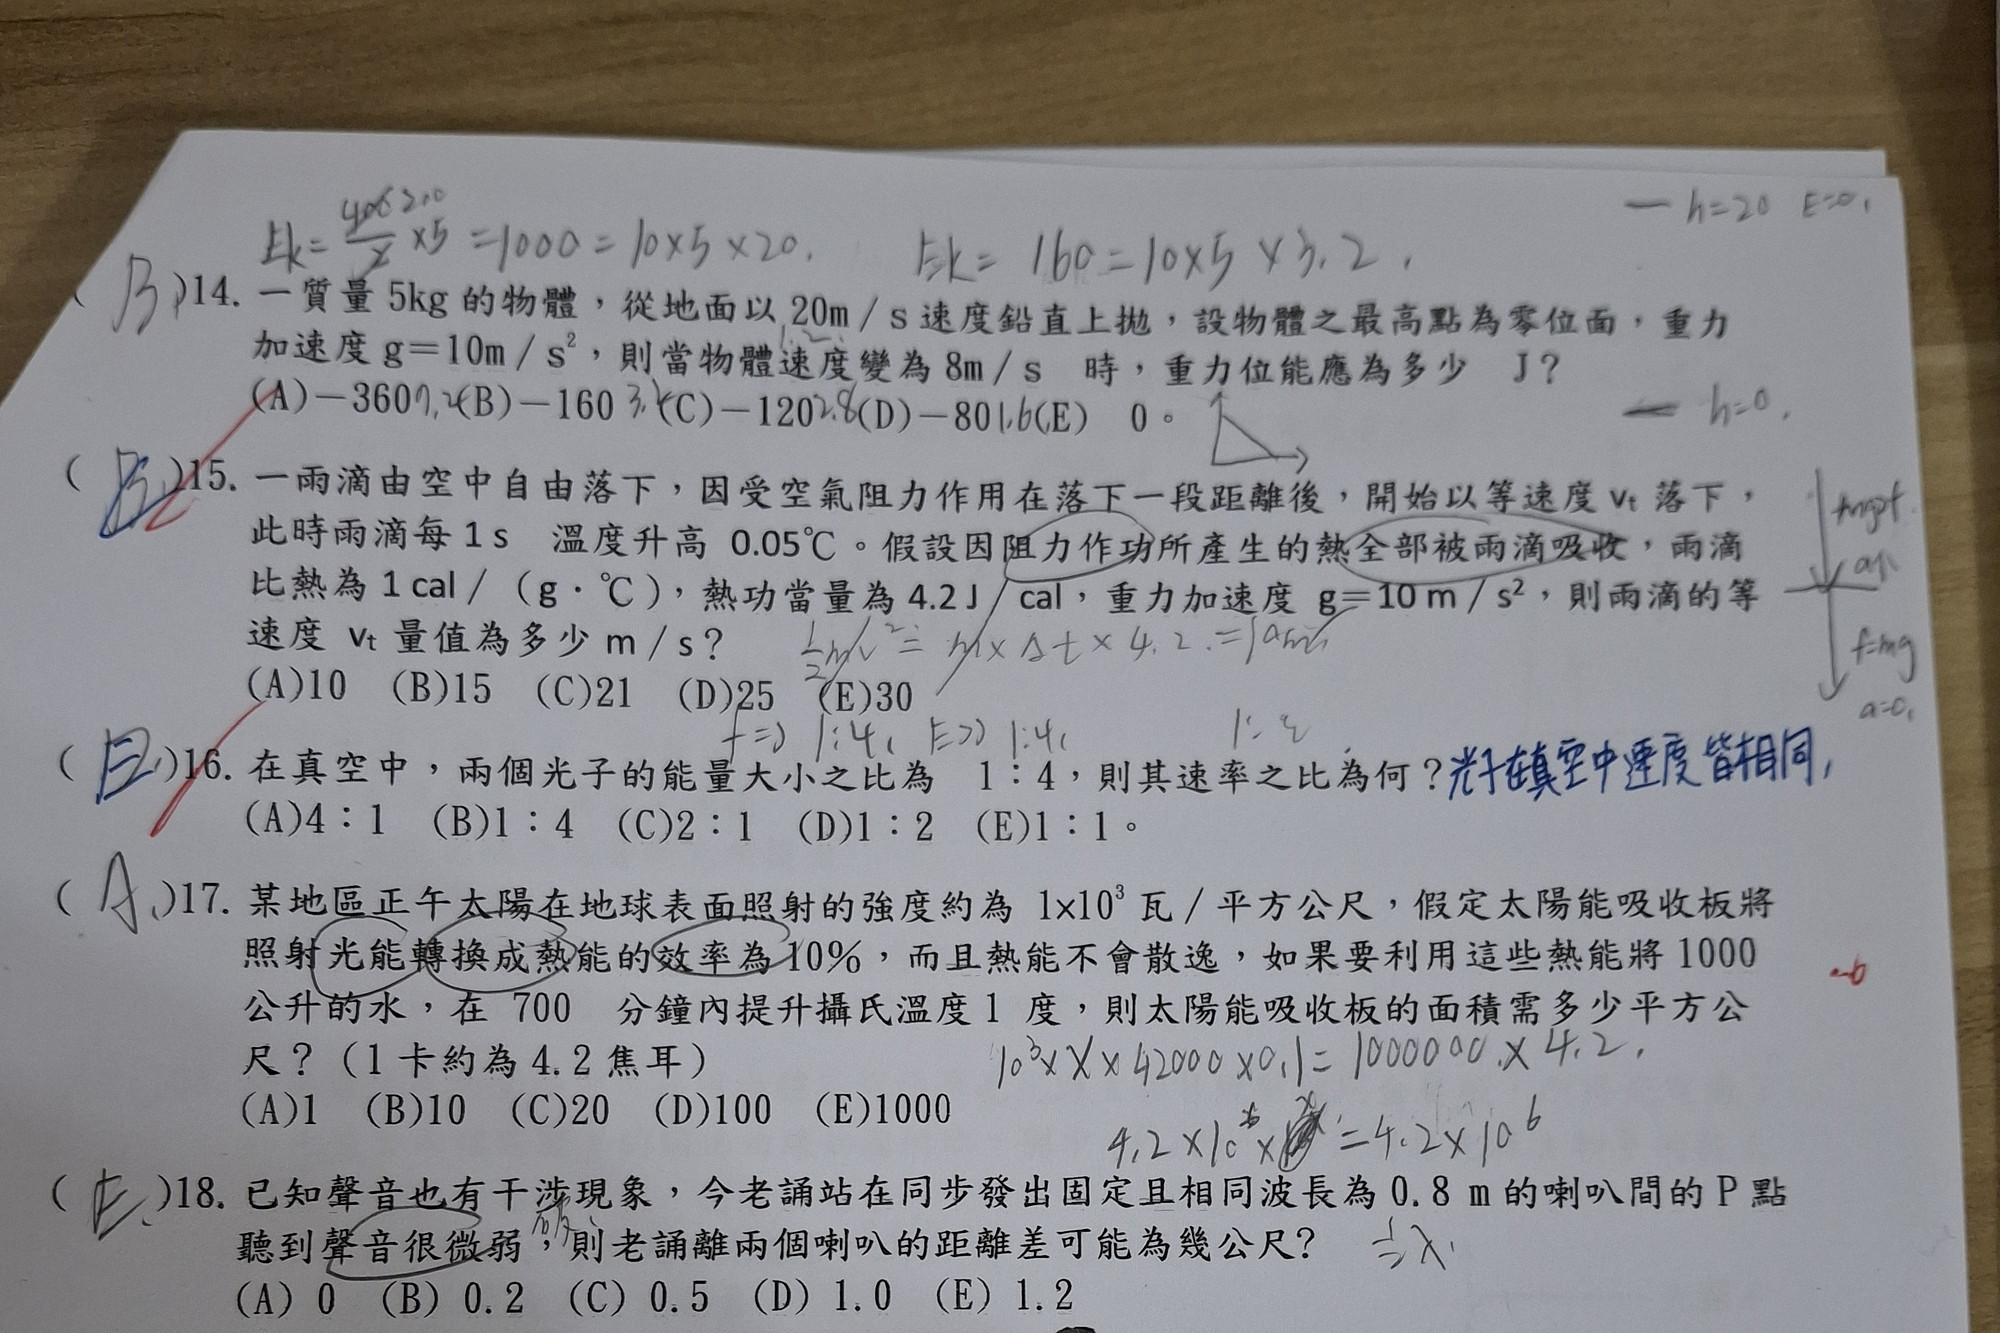 Ek= ×5 =1000=10×5×20. Ek= 160=10×5×3.2.
h=20 E=0.
(B.)14. 一質量 5kg 的物體，從地面以 20m / s 速度鉛直上拋，設物體之最高點為零位面，重力
加速度 g=10m / s²，則當物體速度變為 8m / s 時，重力位能應為多少 J？
(A)-360 7.2 (B)-160 3.2 (C)-120 2.8 (D)-80 1.6 (E) 0。
h=0.
( )15. 一雨滴由空中自由落下，因受空氣阻力作用在落下一段距離後，開始以等速度 vₜ 落下，
此時雨滴每 1 s 溫度升高 0.05℃。假設因阻力作功所產生的熱全部被雨滴吸收，雨滴
比熱為 1 cal / （g · ℃），熱功當量為 4.2 J / cal，重力加速度 g=10 m / s²，則雨滴的等
f=mg
速度 vₜ 量值為多少 m / s？ ½mv²= m×Δt×4.2.
(A)10 (B)15 (C)21 (D)25 (E)30
a=0.
f=> 1:4, E=> 1:4,
(E.)16. 在真空中，兩個光子的能量大小之比為 1：4，則其速率之比為何？光子在真空中速度皆相同,
(A)4：1 (B)1：4 (C)2：1 (D)1：2 (E)1：1。
(A.)17. 某地區正午太陽在地球表面照射的強度約為 1×10³ 瓦 / 平方公尺，假定太陽能吸收板將
照射光能轉換成熱能的效率為 10%，而且熱能不會散逸，如果要利用這些熱能將 1000
-6
公升的水，在 700 分鐘內提升攝氏溫度 1 度，則太陽能吸收板的面積需多少平方公
尺？（1 卡約為 4.2 焦耳）
10³×X×42000×0.1=1000000×4.2.
(A)1 (B)10 (C)20 (D)100 (E)1000
=4.2×10⁶
(E.)18. 已知聲音也有干涉現象，今老誦站在同步發出固定且相同波長為 0.8 m 的喇叭間的 P 點
聽到聲音很微弱，則老誦離兩個喇叭的距離差可能為幾公尺？ ½λ.
(A) 0 (B) 0.2 (C) 0.5 (D) 1.0 (E) 1.2